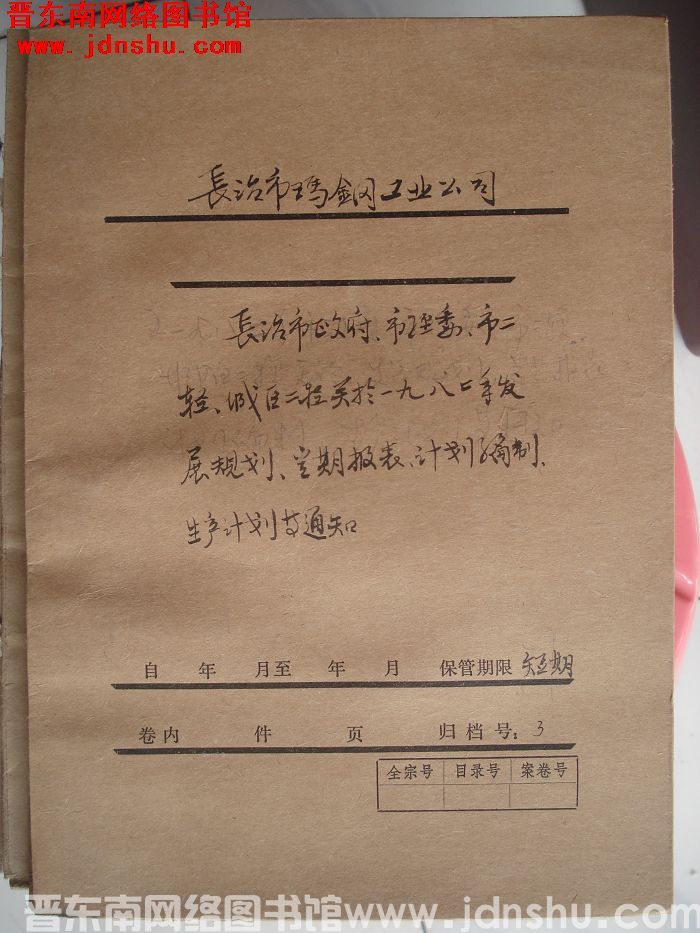 晋东南网络图书馆
www.jdnshu.com
長治市瑪鋼工业公司
長治市政府、市经委、市二
轻、城区二轻关於一九八二年发
展规划、定期报表、计划编制、
生产计划等通知
自 年 月至 年 月 保管期限 短期
卷内 件 页 归档号：3
全宗号 目录号 案卷号
晋东南网络图书馆www.jdnshu.com